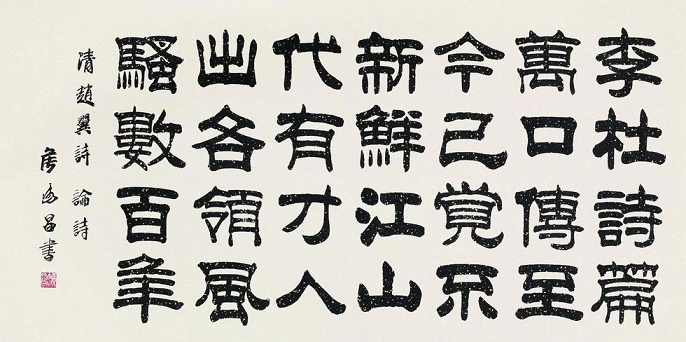 李杜詩篇
萬口傳至
今已覺不
新鮮江山
代有才人
出各領風
騷數百年
清趙翼詩論詩
昌書